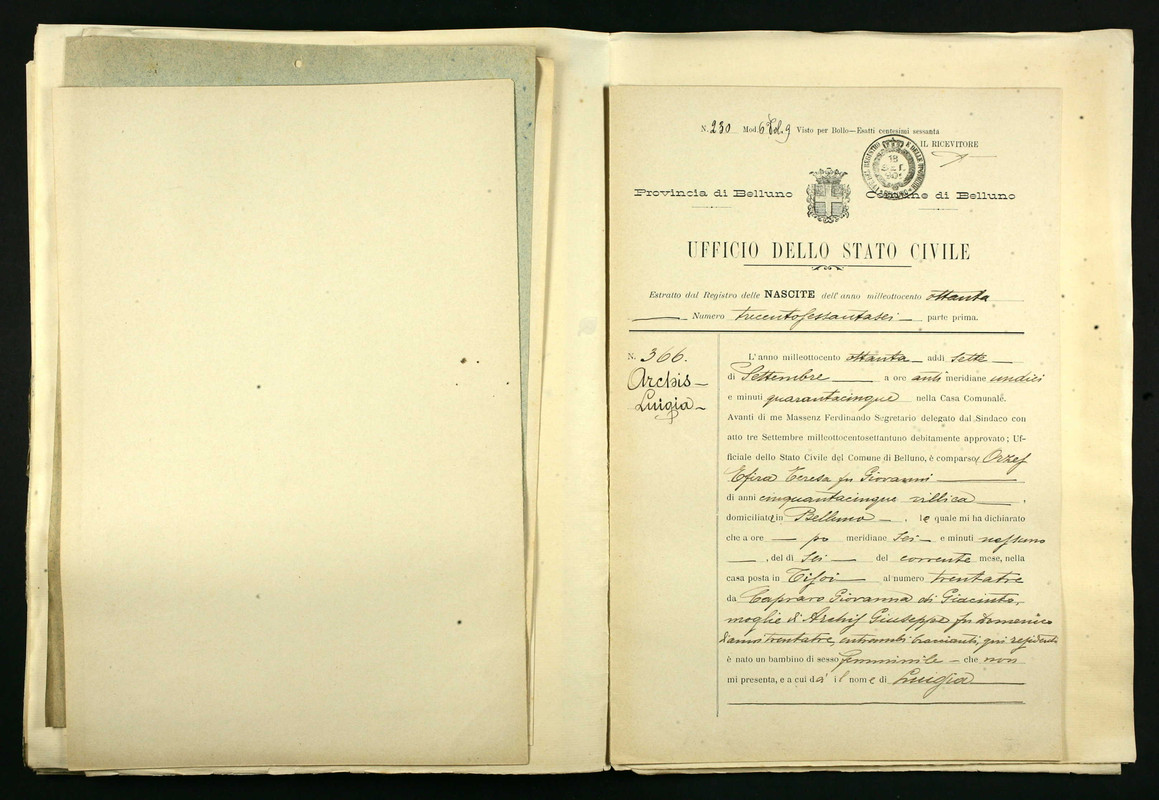 N. 230 Mod. 6 Vol. 9 Visto per Bollo—Esatti centesimi sessanta
IL RICEVITORE
18
SET.
Provincia di Belluno Comune di Belluno
UFFICIO DELLO STATO CIVILE
Estratto dal Registro delle NASCITE dell' anno milleottocento ottanta
Numero trecentosessantasei parte prima.
N. 366.
Archis
Luigia
L'anno milleottocento ottanta addì sette
di Settembre a ore anti meridiane undici
e minuti quarantacinque nella Casa Comunale.
Avanti di me Massenz Ferdinando Segretario delegato dal Sindaco con
atto tre Settembre milleottocentosettantuno debitamente approvato; Uf-
ficiale dello Stato Civile del Comune di Belluno, è comparsa Orzes
Efira Teresa fu Giovanni
di anni cinquantacinque villica,
domiciliata in Belluno, la quale mi ha dichiarato
che a ore po meridiane sei e minuti nessuno
, del dì sei del corrente mese, nella
casa posta in Tisoi al numero trentatre
da Capraro Giovanna di Giacinto,
moglie di Archis Giuseppe fu Domenico
d'anni trentatre, entrambi braccianti, qui residenti
è nato un bambino di sesso femminile che non
mi presenta, e a cui dà il nome di Luigia